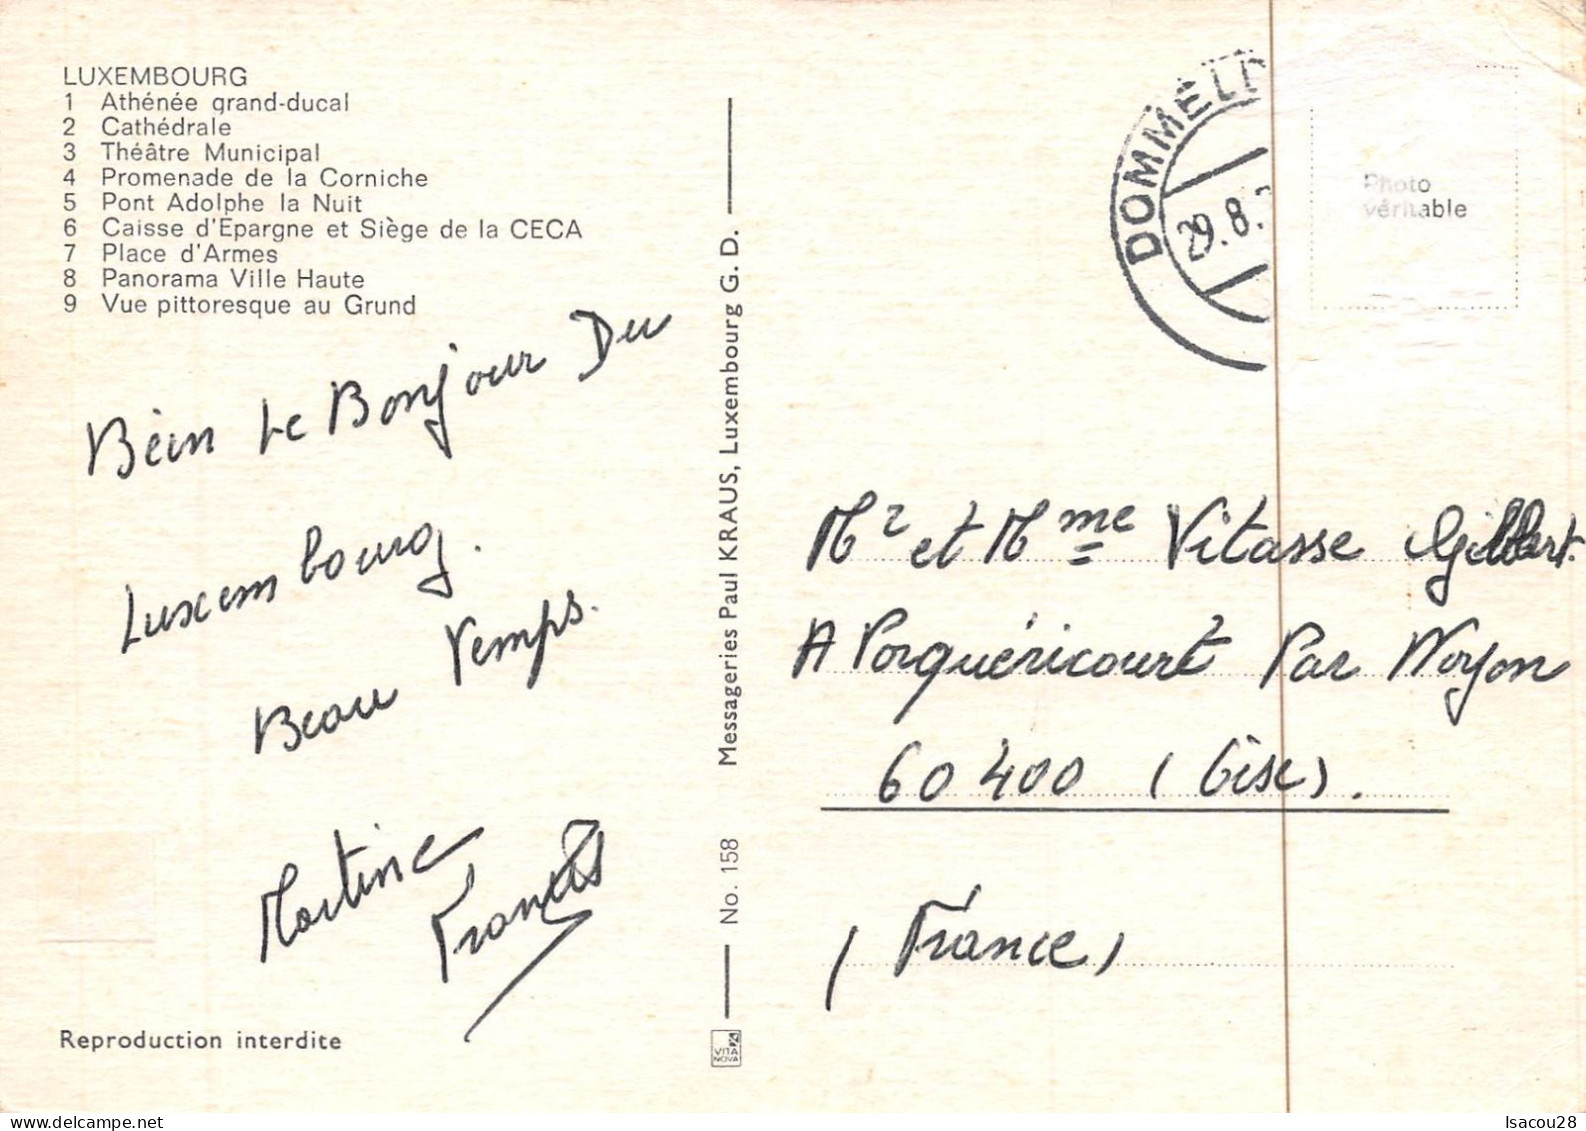 LUXEMBOURG
1 Athénée grand-ducal
2 Cathédrale
3 Théâtre Municipal
4 Promenade de la Corniche
5 Pont Adolphe la Nuit
6 Caisse d'Epargne et Siège de la CECA
7 Place d'Armes
8 Panorama Ville Haute
9 Vue pittoresque au Grund
Bein Le Bonjour Du
Luxembourg.
Beau Temps.
Martine
Francis
Reproduction interdite
No. 158 Messageries Paul KRAUS, Luxembourg G. D.
VITA
NOVA
DOMMELD
29.8.
Photo
véritable
Mr et Mme Vitasse Gilbert.
A Porquéricourt Par Noyon
60400 (Oise).
(France)
Isacou28